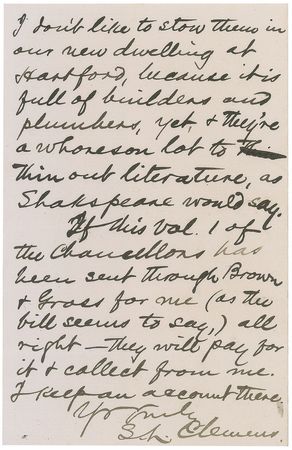 I don't like to stow them in
our new dwelling at
Hartford, because it is
full of builders and
plumbers, yet, & they're
a whoreson lot to thin
thin out literature, as
Shakspeare would say.
If this vol. 1 of
the Chancellors has
been sent through Brown
& Gross for me (as the
bill seems to say,) all
right — they will pay for
it & collect from me.
I keep an account there.
Yrs Truly
S. L. Clemens